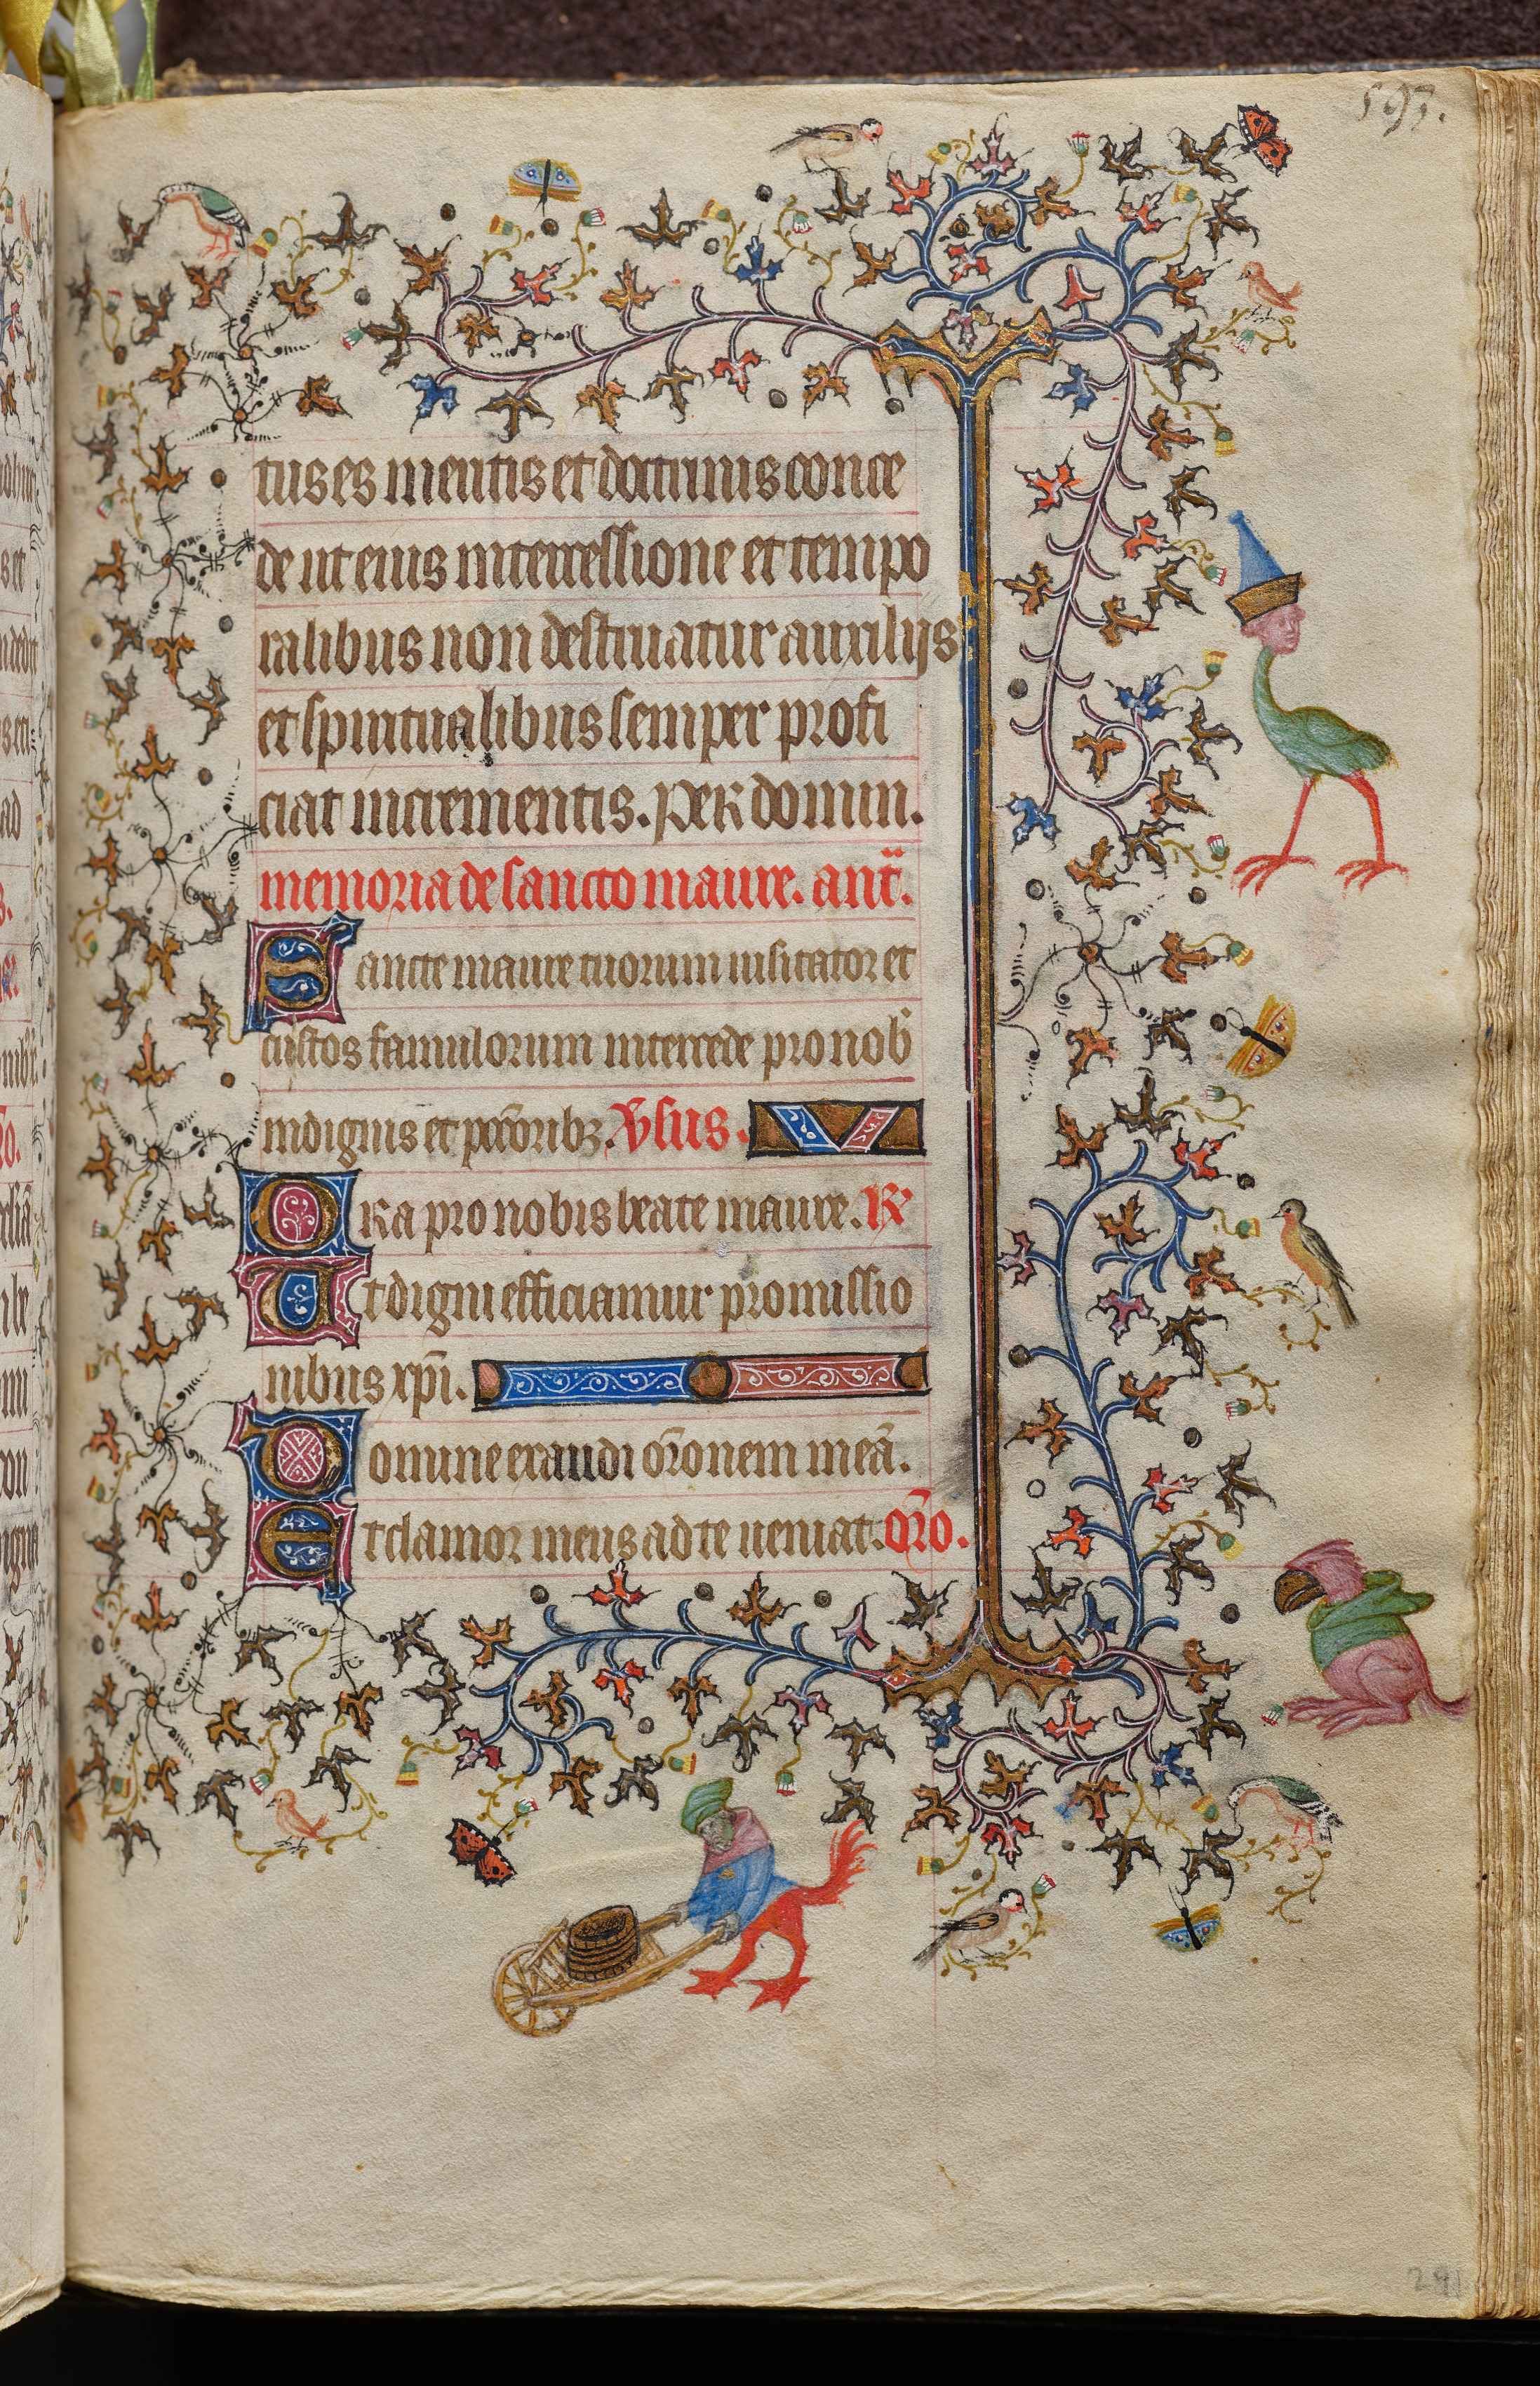 593.
tus es mentis et doctrinis conce
de ut eius intercessione et tempo
ralibus non destituatur auxilijs
et spiritualibus semper profi
ciat incrementis. Per domin.
memoria de sancto maure. ant̃.
Sancte maure tuorum uisitator et
custos famulorum intercede pro nob̾
indignis et pccōribꝫ. Ʋ̃sus.
Ora pro nobis beate maure. ℟
Ut digni efficiamur promissio
nibus xp̄i.
Domine exaudi or̄onem meā.
Et clamor meus ad te ueniat. Or̄o.
291